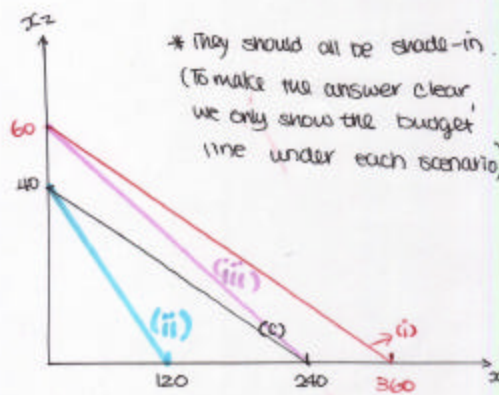 x2
* They should all be shade-in.
(To make the answer clear,
we only show the budget
line under each scenario)
60
40
(iii)
(ii)
(c)
(i)
120
240
360
x